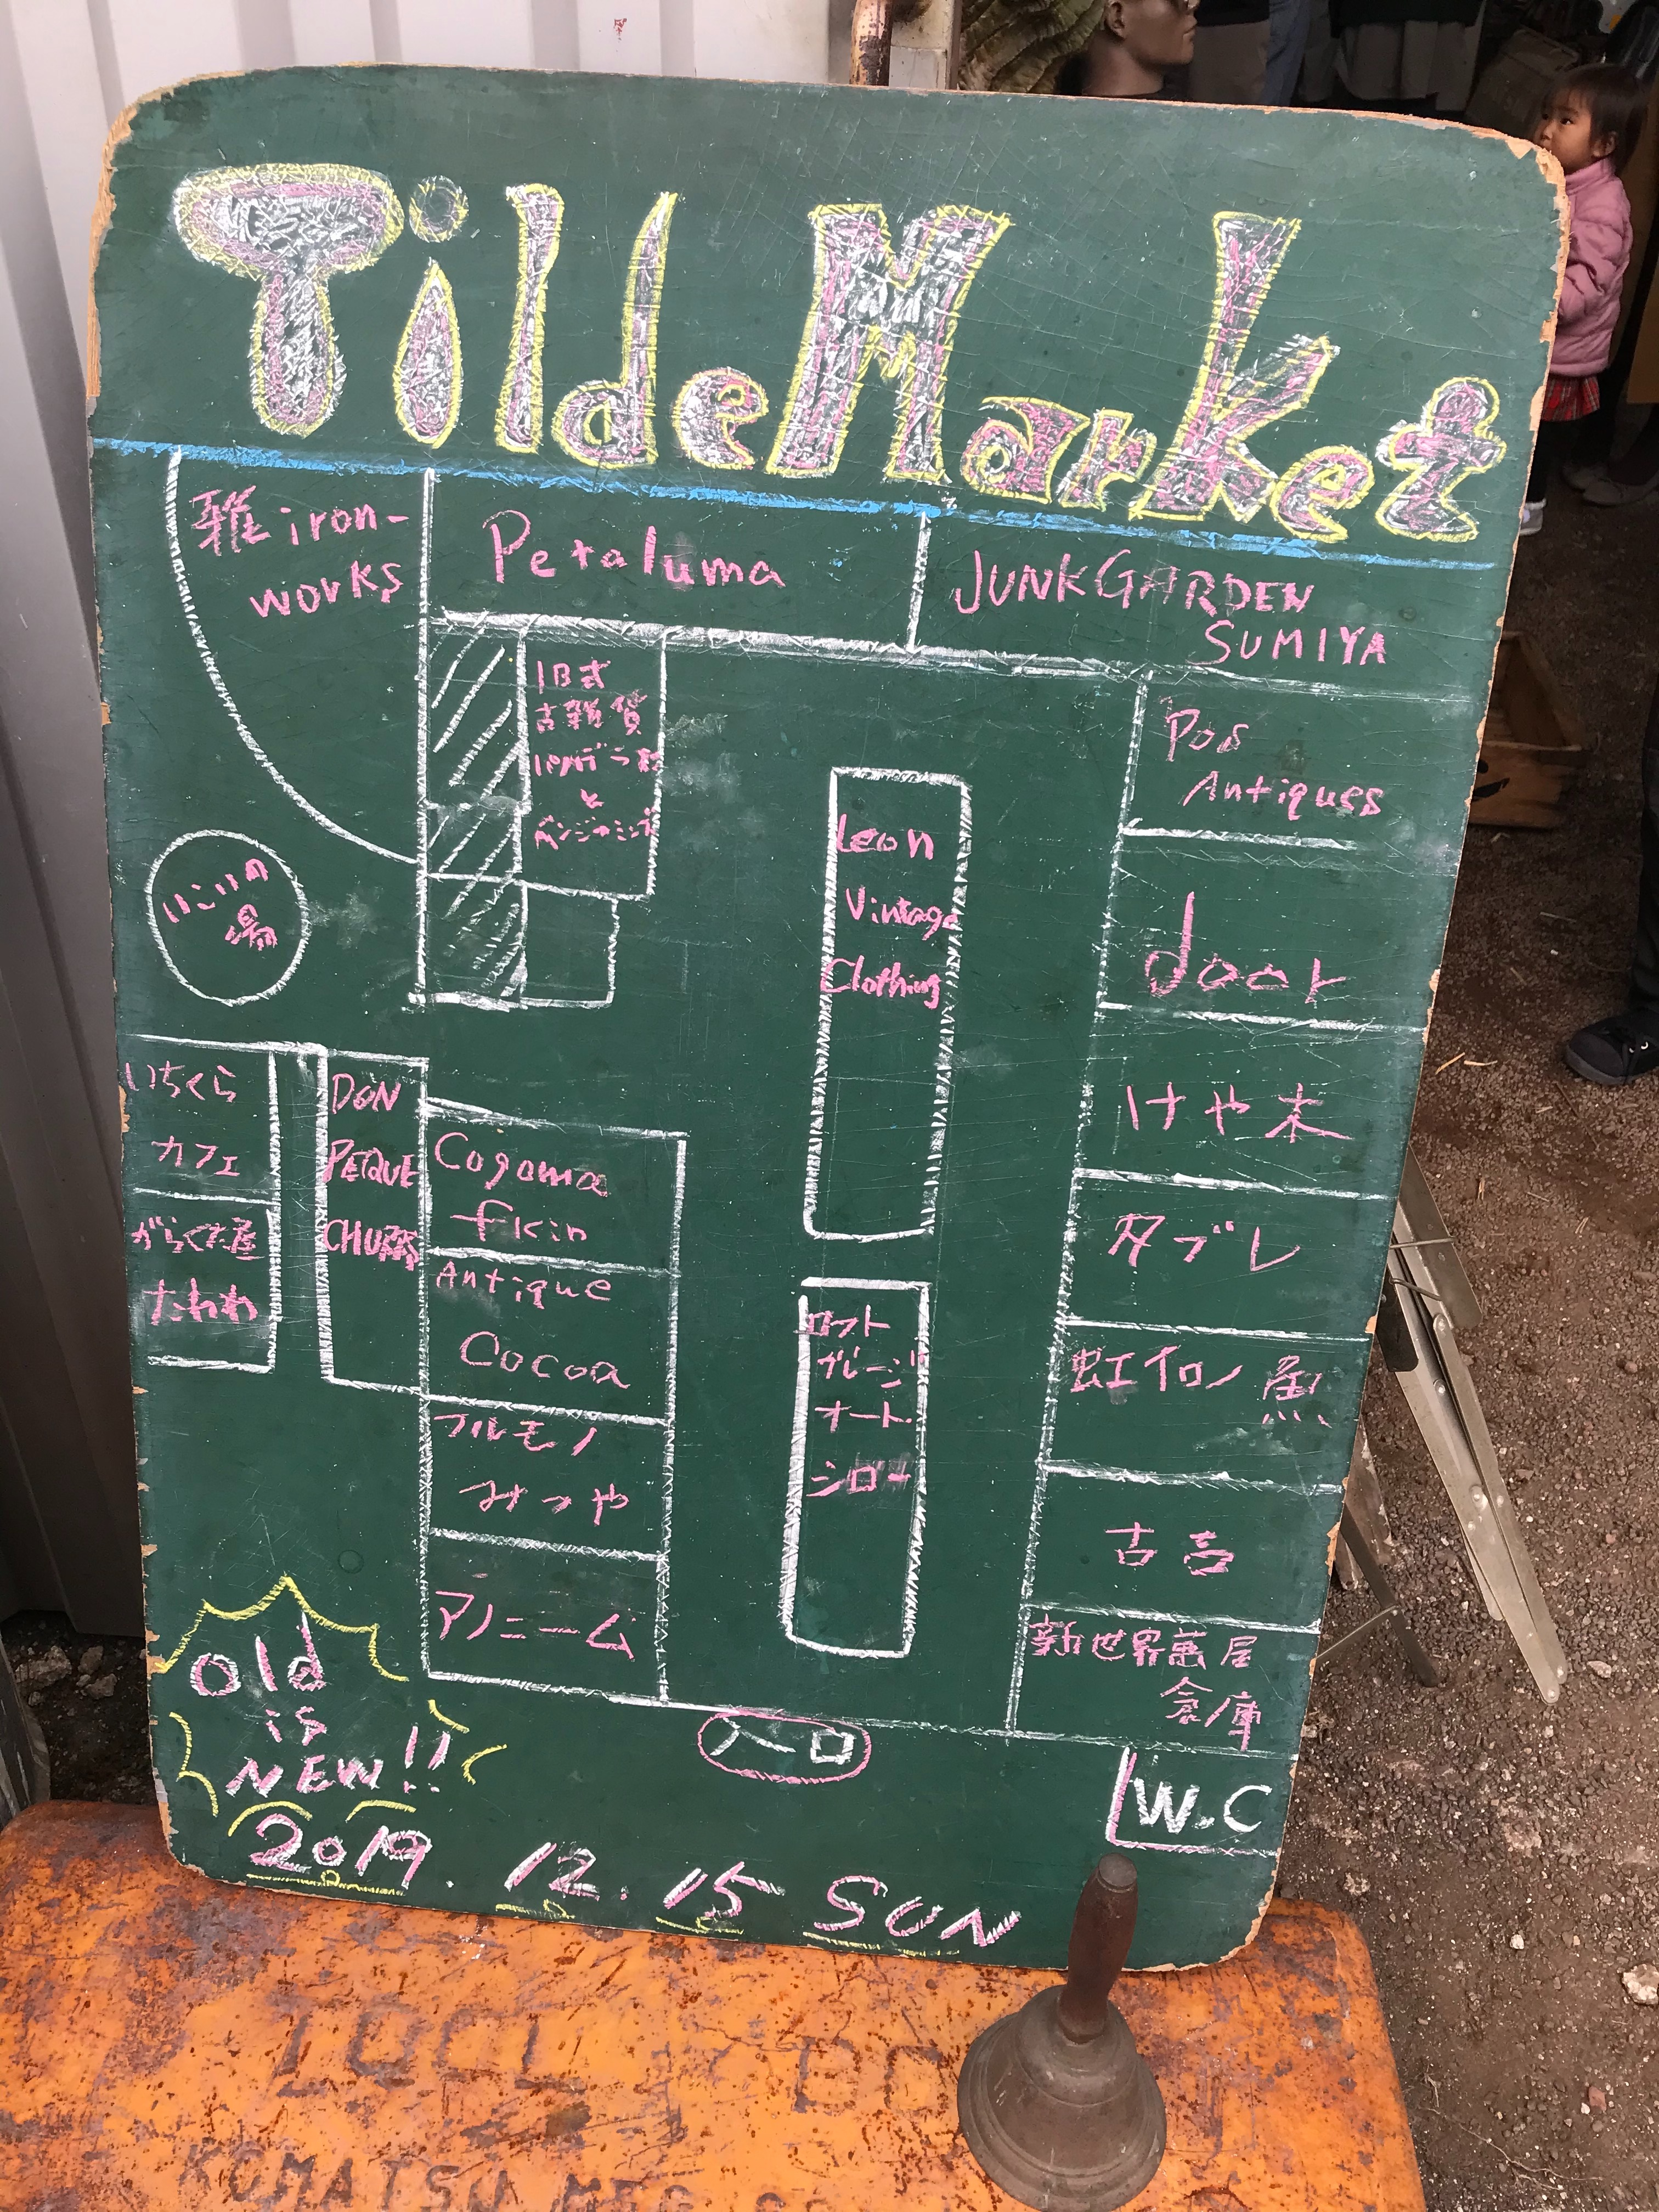 Tilde Market
雅 iron-
works
Petaluma
JUNK GARDEN
SUMIYA
旧式
古雑貨
と
Pos
Antiques
Leon
Vintage
Clothing
door
いこいの
場
いちくら
カフェ
がらくた屋
たわわ
DON
PEQUE
Cogoma
fkin
Antique
Cocoa
フルモノ
みつや
アノニーム
ロフト
ガレージ
オート
シロー
けや木
タブレ
虹イロノ
古壱
新世界萬屋
倉庫
入口
W.C
Old
is
NEW!!
2019. 12. 15 SUN
KOMATSU MFG CO